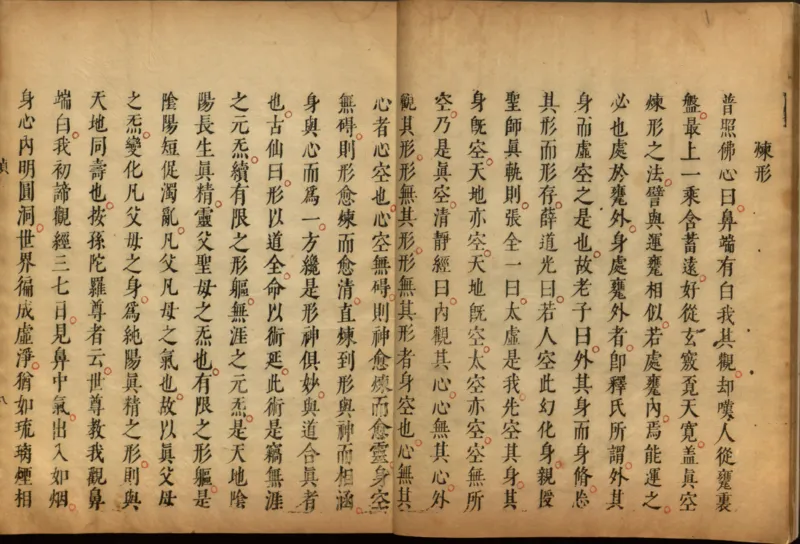 煉形
普照佛心曰鼻端有白我其觀却嘆人從甕裏
盤最上一乘含蓄遠好從玄竅覔天寬蓋眞空
煉形之法譬與運甕相似若處甕內焉能運之
必也處於甕外身處甕外者卽釋氏所謂外其
身而虛空之是也故老子曰外其身而身脩忘
其形而形存薛道光曰若人空此幻化身親授
聖師眞軌則張全一曰太虛是我先空其身其
身旣空天地亦空天地旣空太空亦空空無所
空乃是眞空清靜經曰內觀其心心無其心外
觀其形形無其形形無其形者身空也心無其
心者心空也心空無碍則神愈煉而愈靈身空
無碍則形愈煉而愈清直煉到形與神而相涵
身與心而爲一方纔是形神俱妙與道合眞者
也古仙曰形以道全命以術延此術是竊無涯
之元炁續有限之形軀無涯之元炁是天地陰
陽長生眞精靈父聖母之炁也有限之形軀是
陰陽短促濁亂凡父凡母之氣也故以眞父母
之炁變化凡父母之身爲純陽眞精之形則與
天地同壽也按孫陀羅尊者云世尊教我觀鼻
端白我初諦觀經三七日見鼻中氣出入如烟
身心內明圓洞世界徧成虛淨猶如琉璃煙相